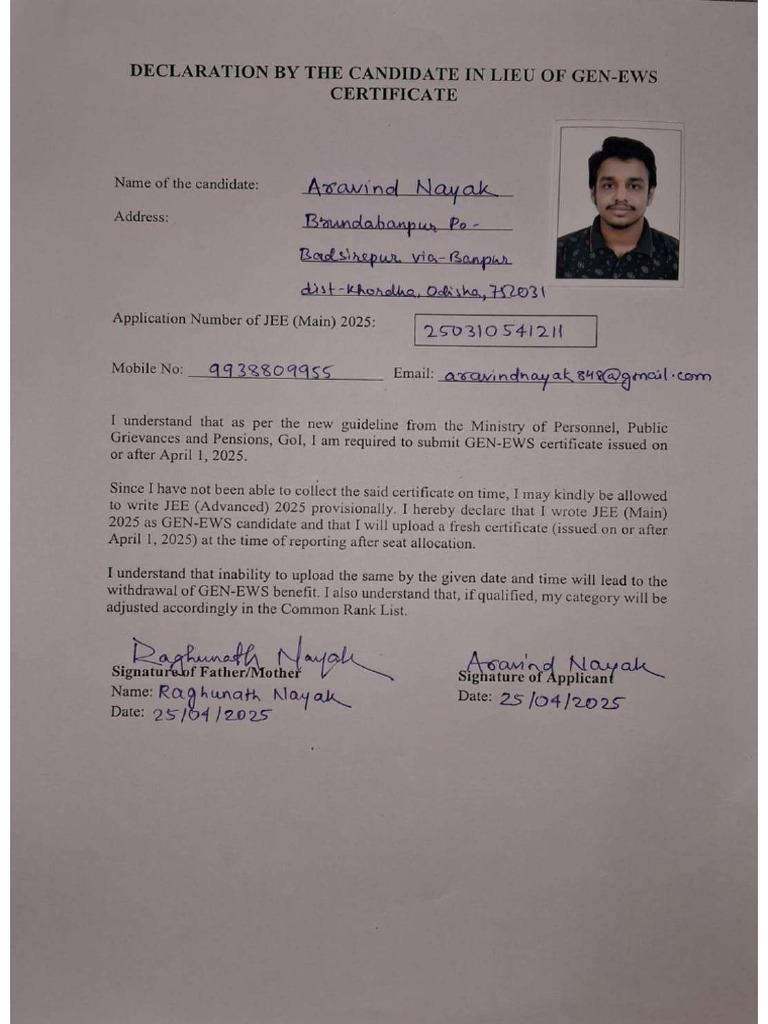 DECLARATION BY THE CANDIDATE IN LIEU OF GEN-EWS
CERTIFICATE
Name of the candidate: Aravind Nayak
Address: Brundabanpur Po-
Badsirepur via-Banpur
dist-Khordha, Odisha, 752031
Application Number of JEE (Main) 2025: 250310541211
Mobile No: 9938809955 Email: aravindnayak848@gmail.com
I understand that as per the new guideline from the Ministry of Personnel, Public
Grievances and Pensions, GoI, I am required to submit GEN-EWS certificate issued on
or after April 1, 2025.
Since I have not been able to collect the said certificate on time, I may kindly be allowed
to write JEE (Advanced) 2025 provisionally. I hereby declare that I wrote JEE (Main)
2025 as GEN-EWS candidate and that I will upload a fresh certificate (issued on or after
April 1, 2025) at the time of reporting after seat allocation.
I understand that inability to upload the same by the given date and time will lead to the
withdrawal of GEN-EWS benefit. I also understand that, if qualified, my category will be
adjusted accordingly in the Common Rank List.
Raghunath Nayak Aravind Nayak
Signature of Father/Mother Signature of Applicant
Name: Raghunath Nayak Date: 25/04/2025
Date: 25/04/2025